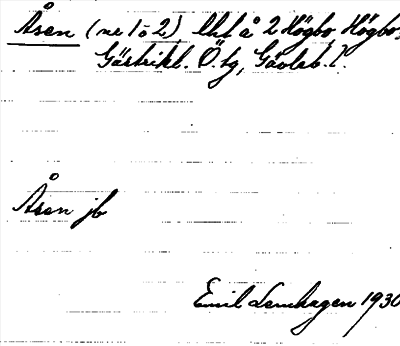 Åsen (nr 1 o 2), lht å 2 Högbo, Högbo s
Gästrikl. Ö. tg, Gävleb. l.
Åsen jb
Emil Lemhagen 1930